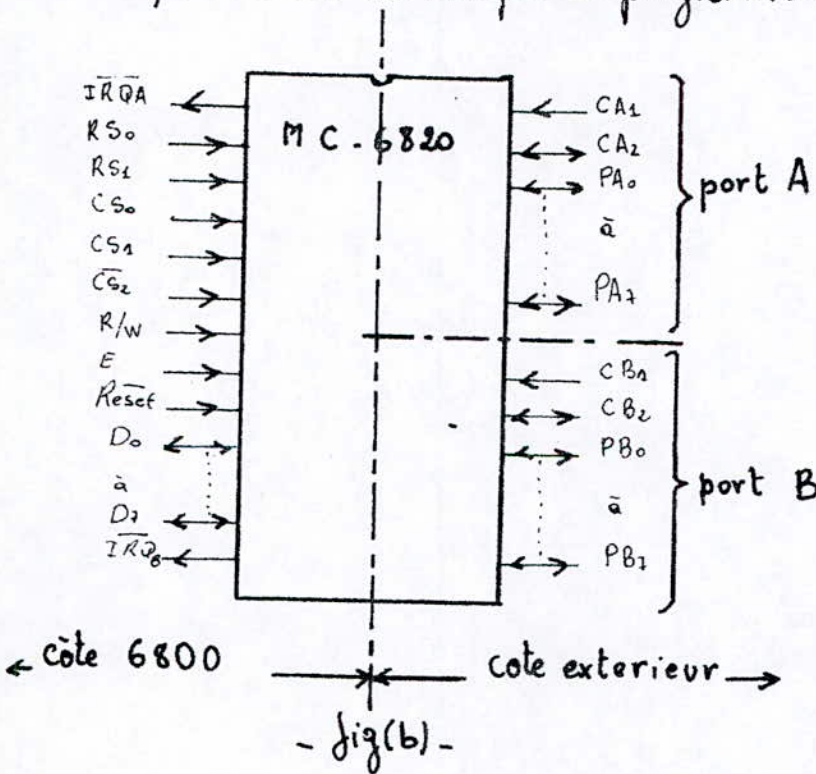 MC-6820
I̅R̅Q̅A̅
RS₀
RS₁
CS₀
CS₁
C̅S̅₂
R/W
E
R̅e̅s̅e̅t̅
D₀
à
D₇
I̅R̅Q̅B̅
CA₁
CA₂
PA₀
à
PA₇
port A
CB₁
CB₂
PB₀
à
PB₇
port B
côte 6800
cote exterieur
- fig(b) -